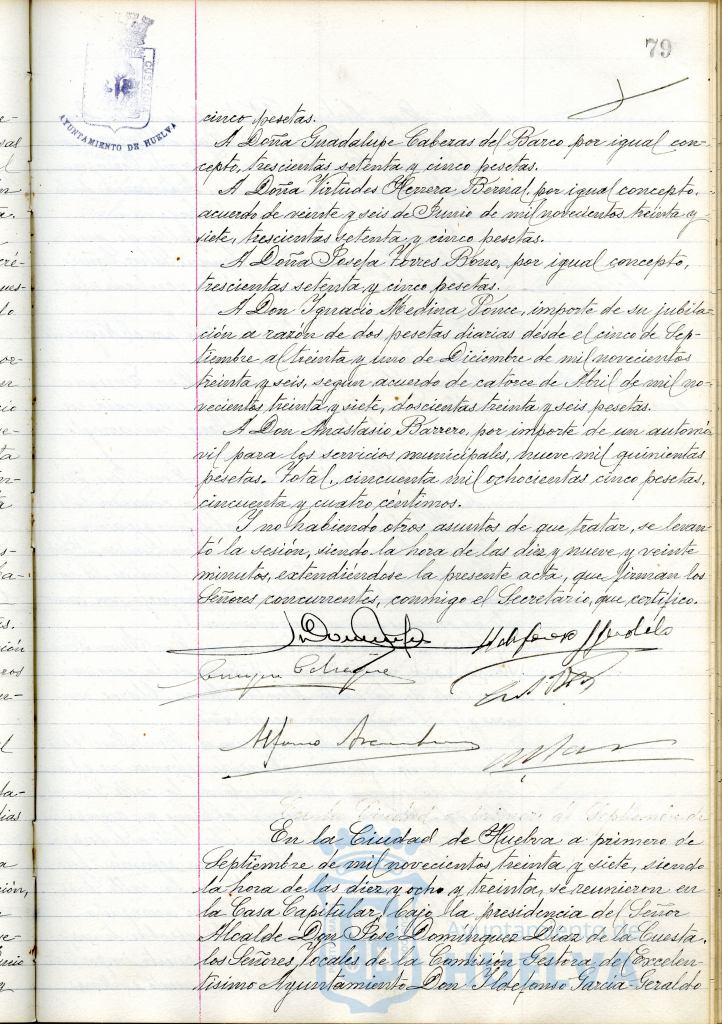 79
CUSTODIA
AYUNTAMIENTO DE HUELVA
cinco pesetas.
A Doña Guadalupe Caberas del Barco por igual con-
cepto, trescientas setenta y cinco pesetas.
A Doña Virtudes Herrera Bernal, por igual concepto,
acuerdo de veinte y seis de Junio de mil novecientos treinta y
siete, trescientas setenta y cinco pesetas.
A Doña Josefa Torres Bono, por igual concepto,
trescientas setenta y cinco pesetas.
A Don Ignacio Medina Ponce, importe de su jubila-
ción a razón de dos pesetas diarias desde el cinco de Sep-
tiembre al treinta y uno de Diciembre de mil novecientos
treinta y seis, según acuerdo de catorce de Abril de mil no-
vecientos treinta y siete, doscientas treinta y seis pesetas.
A Don Anastasio Barrero, por importe de un automó
vil para los servicios municipales, nueve mil quinientas
pesetas. Total, cincuenta mil ochocientas cinco pesetas,
cincuenta y cuatro céntimos.
Y no habiendo otros asuntos de que tratar, se levan
tó la sesión, siendo la hora de las diez y nueve y veinte
minutos, extendiéndose la presente acta, que firman los
Señores concurrentes, conmigo el Secretario, que certifico.
En la Ciudad de Huelva a primero de
Septiembre de mil novecientos treinta y siete, siendo
la hora de las diez y ocho y treinta, se reunieron en
la Casa Capitular, bajo la presidencia del Señor
Alcalde Don José Domínguez Díaz de la Cuesta,
los Señores locales de la Comisión Gestora del Excelen-
tísimo Ayuntamiento Don Ildefonso García-Geraldo
Ayuntamiento de
HUELVA